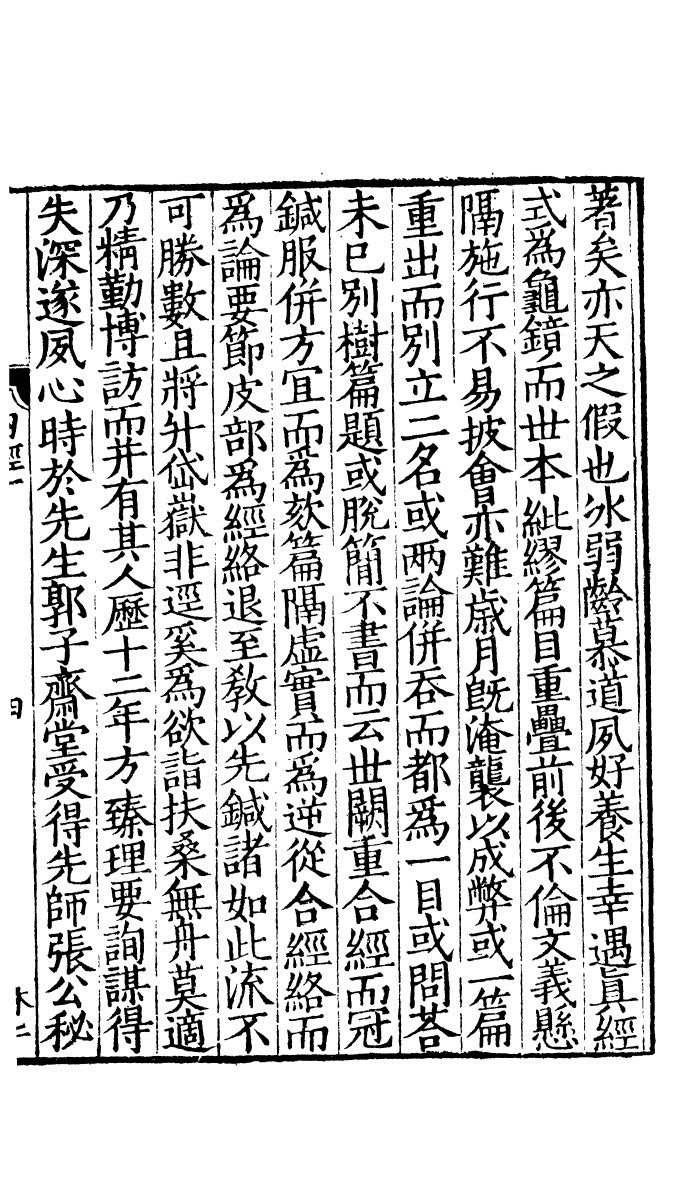 著矣亦天之假也冰弱齡慕道夙好養生幸遇眞經
式爲龜鏡而世本紕繆篇目重疊前後不倫文義懸
隔施行不易披會亦難歲月旣淹襲以成弊或一篇
重出而別立二名或两論併吞而都爲一目或問荅
未已別樹篇題或脫簡不書而云世闕重合經而冠
鍼服併方宜而爲欬篇隔虛實而爲逆從合經絡而
爲論要節皮部爲經絡退至敎以先鍼諸如此流不
可勝數且將升岱嶽非逕奚爲欲詣扶桑無舟莫適
乃精勤博訪而并有其人歷十二年方臻理要詢謀得
失深遂夙心時於先生郭子齋堂受得先師張公秘
四